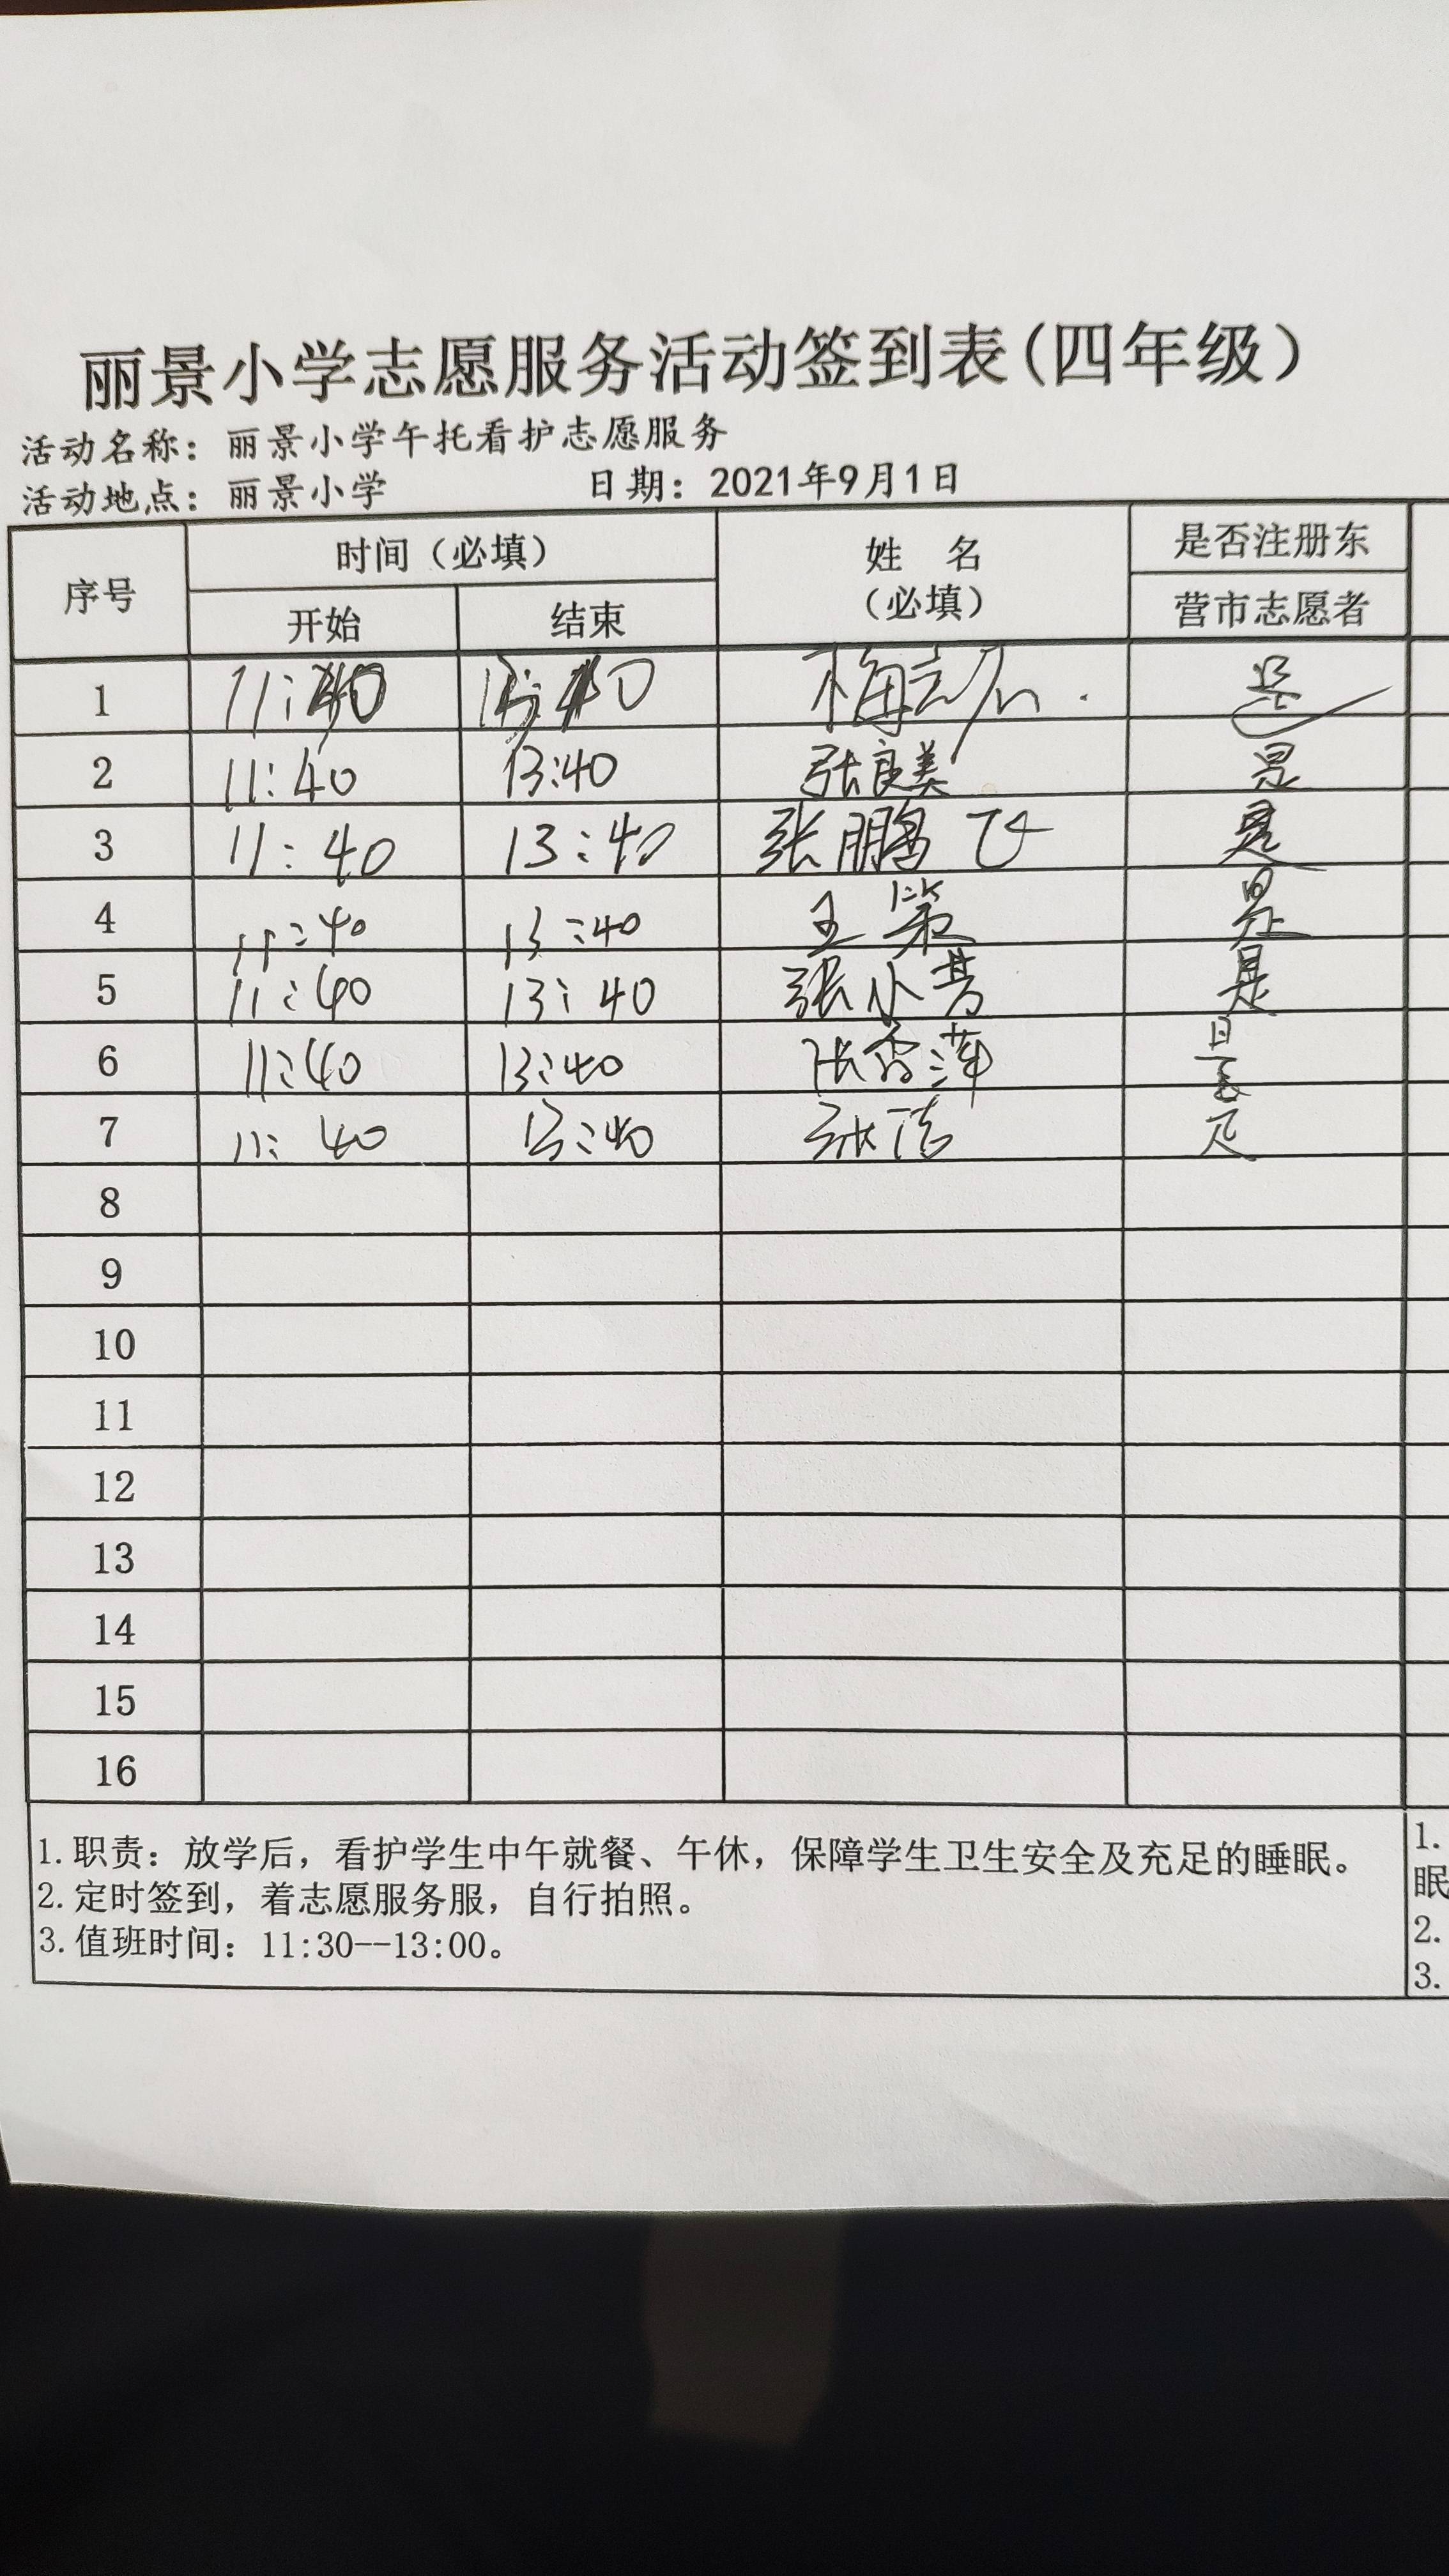 丽景小学志愿服务活动签到表(四年级)
活动名称：丽景小学午托看护志愿服务
活动地点：丽景小学 日期：2021年9月1日
序号 时间（必填） 姓 名 是否注册东
开始 结束 （必填） 营市志愿者
1 11:40 13:40 是
2 11:40 13:40 张良美 是
3 11:40 13:40 张鹏飞 是
4 11:40 13:40 王 是
5 11:40 13:40 张小芳 是
6 11:40 13:40 张香萍 是
7 11:40 13:40 张洁 是
8
9
10
11
12
13
14
15
16
1.职责：放学后，看护学生中午就餐、午休，保障学生卫生安全及充足的睡眠。
2.定时签到，着志愿服务服，自行拍照。
3.值班时间：11:30--13:00。
1.
眠
2.
3.